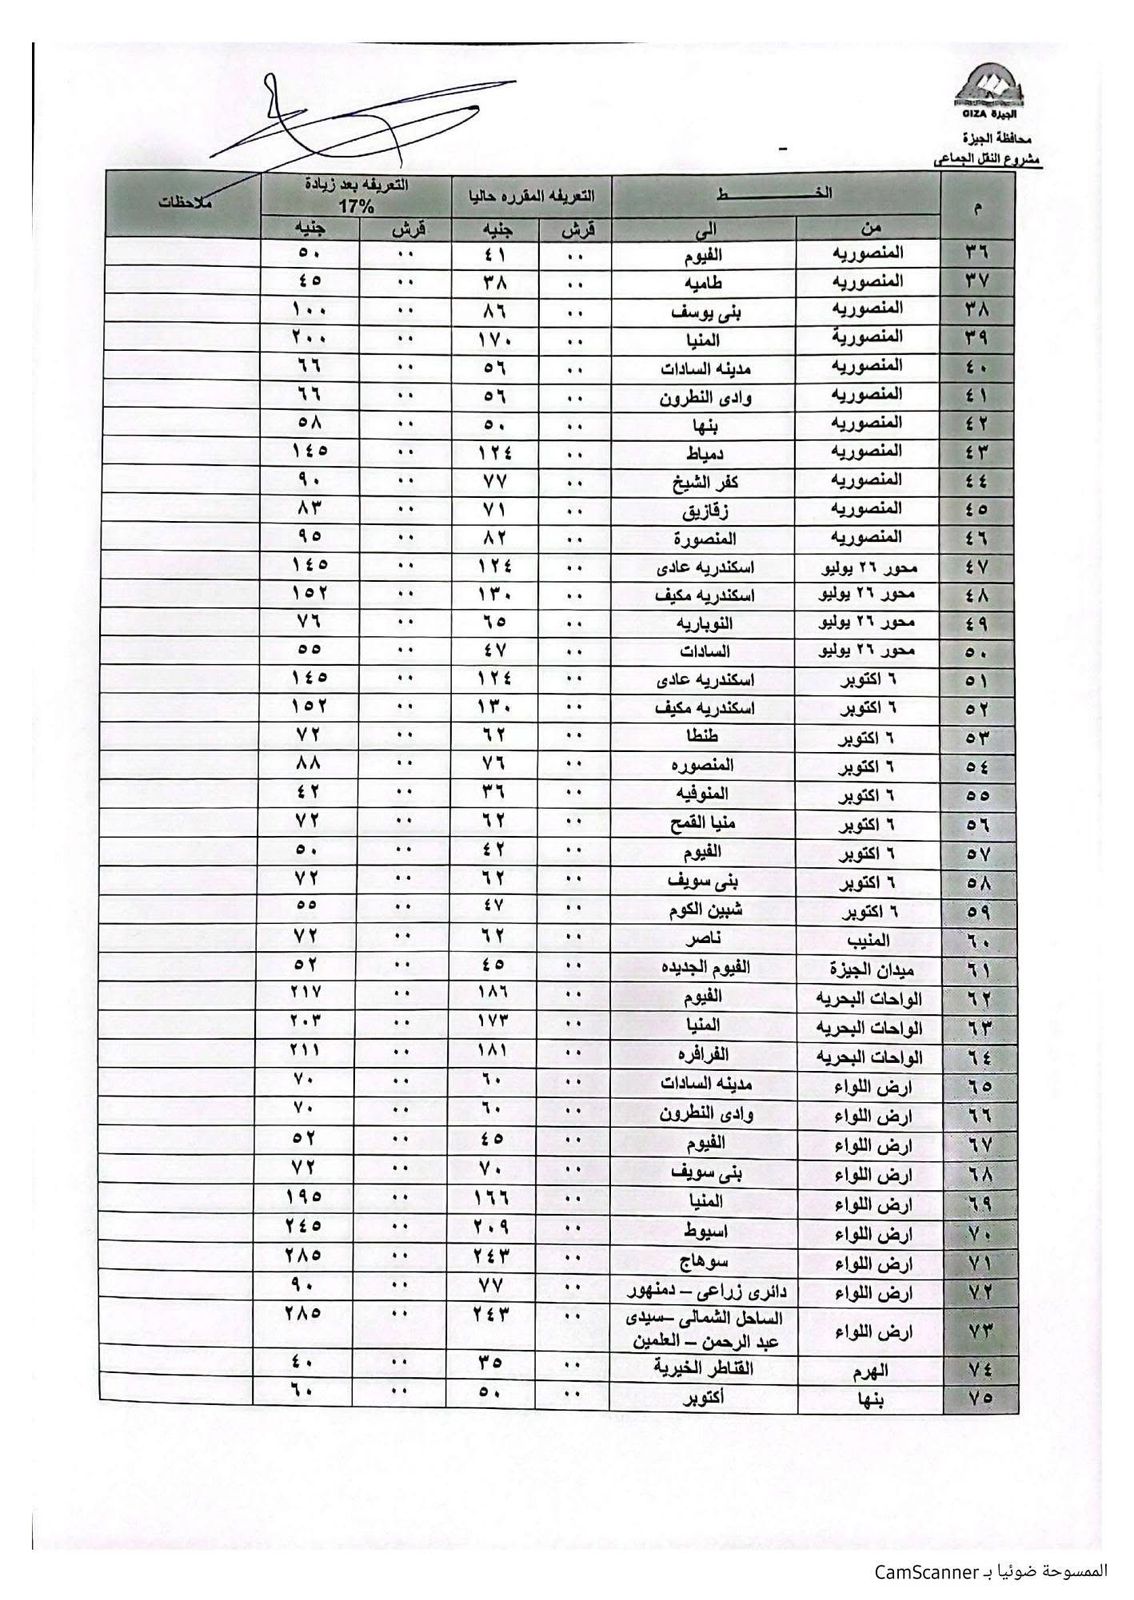 الجيزة GIZA
محافظة الجيزة
مشروع النقل الجماعى
م الخـــــط التعريفه المقرره حاليا التعريفه بعد زيادة 17% ملاحظات
من الى قرش جنيه قرش جنيه
٣٦ المنصوريه الفيوم ٠٠ ٤١ ٠٠ ٥٠
٣٧ المنصوريه طاميه ٠٠ ٣٨ ٠٠ ٤٥
٣٨ المنصوريه بنى يوسف ٠٠ ٨٦ ٠٠ ١٠٠
٣٩ المنصورية المنيا ٠٠ ١٧٠ ٠٠ ٢٠٠
٤٠ المنصوريه مدينه السادات ٠٠ ٥٦ ٠٠ ٦٦
٤١ المنصوريه وادى النطرون ٠٠ ٥٦ ٠٠ ٦٦
٤٢ المنصوريه بنها ٠٠ ٥٠ ٠٠ ٥٨
٤٣ المنصوريه دمياط ٠٠ ١٢٤ ٠٠ ١٤٥
٤٤ المنصوريه كفر الشيخ ٠٠ ٧٧ ٠٠ ٩٠
٤٥ المنصوريه زقازيق ٠٠ ٧١ ٠٠ ٨٣
٤٦ المنصوريه المنصورة ٠٠ ٨٢ ٠٠ ٩٥
٤٧ محور ٢٦ يوليو اسكندريه عادى ٠٠ ١٢٤ ٠٠ ١٤٥
٤٨ محور ٢٦ يوليو اسكندريه مكيف ٠٠ ١٣٠ ٠٠ ١٥٢
٤٩ محور ٢٦ يوليو النوباريه ٠٠ ٦٥ ٠٠ ٧٦
٥٠ محور ٢٦ يوليو السادات ٠٠ ٤٧ ٠٠ ٥٥
٥١ ٦ اكتوبر اسكندريه عادى ٠٠ ١٢٤ ٠٠ ١٤٥
٥٢ ٦ اكتوبر اسكندريه مكيف ٠٠ ١٣٠ ٠٠ ١٥٢
٥٣ ٦ اكتوبر طنطا ٠٠ ٦٢ ٠٠ ٧٢
٥٤ ٦ اكتوبر المنصوره ٠٠ ٧٦ ٠٠ ٨٨
٥٥ ٦ اكتوبر المنوفيه ٠٠ ٣٦ ٠٠ ٤٢
٥٦ ٦ اكتوبر منيا القمح ٠٠ ٦٢ ٠٠ ٧٢
٥٧ ٦ اكتوبر الفيوم ٠٠ ٤٢ ٠٠ ٥٠
٥٨ ٦ اكتوبر بنى سويف ٠٠ ٦٢ ٠٠ ٧٢
٥٩ ٦ اكتوبر شبين الكوم ٠٠ ٤٧ ٠٠ ٥٥
٦٠ المنيب ناصر ٠٠ ٦٢ ٠٠ ٧٢
٦١ ميدان الجيزة الفيوم الجديده ٠٠ ٤٥ ٠٠ ٥٢
٦٢ الواحات البحريه الفيوم ٠٠ ١٨٦ ٠٠ ٢١٧
٦٣ الواحات البحريه المنيا ٠٠ ١٧٣ ٠٠ ٢٠٣
٦٤ الواحات البحريه الفرافره ٠٠ ١٨١ ٠٠ ٢١١
٦٥ ارض اللواء مدينه السادات ٠٠ ٦٠ ٠٠ ٧٠
٦٦ ارض اللواء وادى النطرون ٠٠ ٦٠ ٠٠ ٧٠
٦٧ ارض اللواء الفيوم ٠٠ ٤٥ ٠٠ ٥٢
٦٨ ارض اللواء بنى سويف ٠٠ ٧٠ ٠٠ ٧٢
٦٩ ارض اللواء المنيا ٠٠ ١٦٦ ٠٠ ١٩٥
٧٠ ارض اللواء اسيوط ٠٠ ٢٠٩ ٠٠ ٢٤٥
٧١ ارض اللواء سوهاج ٠٠ ٢٤٣ ٠٠ ٢٨٥
٧٢ ارض اللواء دائرى زراعى – دمنهور ٠٠ ٧٧ ٠٠ ٩٠
٧٣ ارض اللواء الساحل الشمالى –سيدى عبد الرحمن – العلمين ٠٠ ٢٤٣ ٠٠ ٢٨٥
٧٤ الهرم القناطر الخيرية ٠٠ ٣٥ ٠٠ ٤٠
٧٥ بنها أكتوبر ٠٠ ٥٠ ٠٠ ٦٠
الممسوحة ضوئيا بـ CamScanner